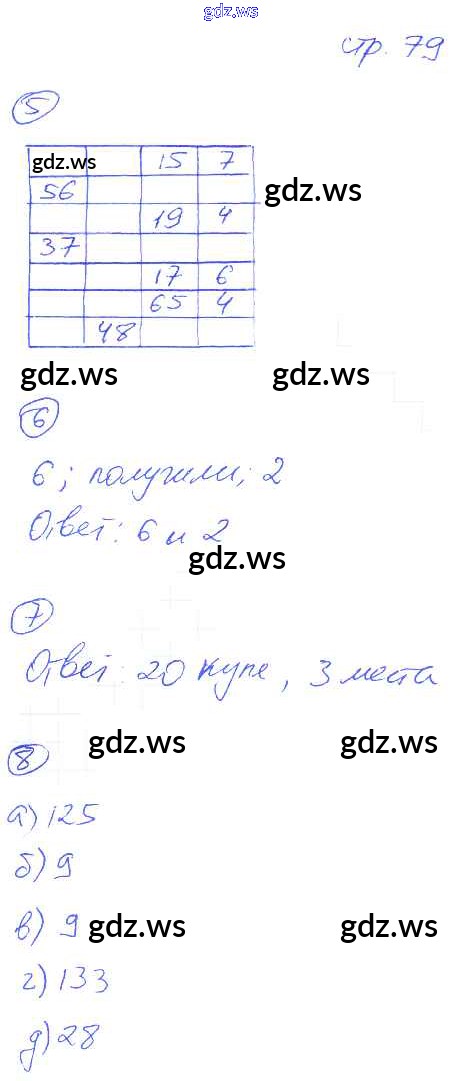 gdz.ws
стр. 79
5
gdz.ws 15 7
56
gdz.ws
19 4
37
17 6
65 4
48
gdz.ws gdz.ws
6
6; получили; 2
Ответ: 6 и 2
gdz.ws
7
Ответ: 20 купе, 3 места
gdz.ws gdz.ws
8
а) 125
б) 9
в) 9 gdz.ws gdz.ws
г) 133
д) 28